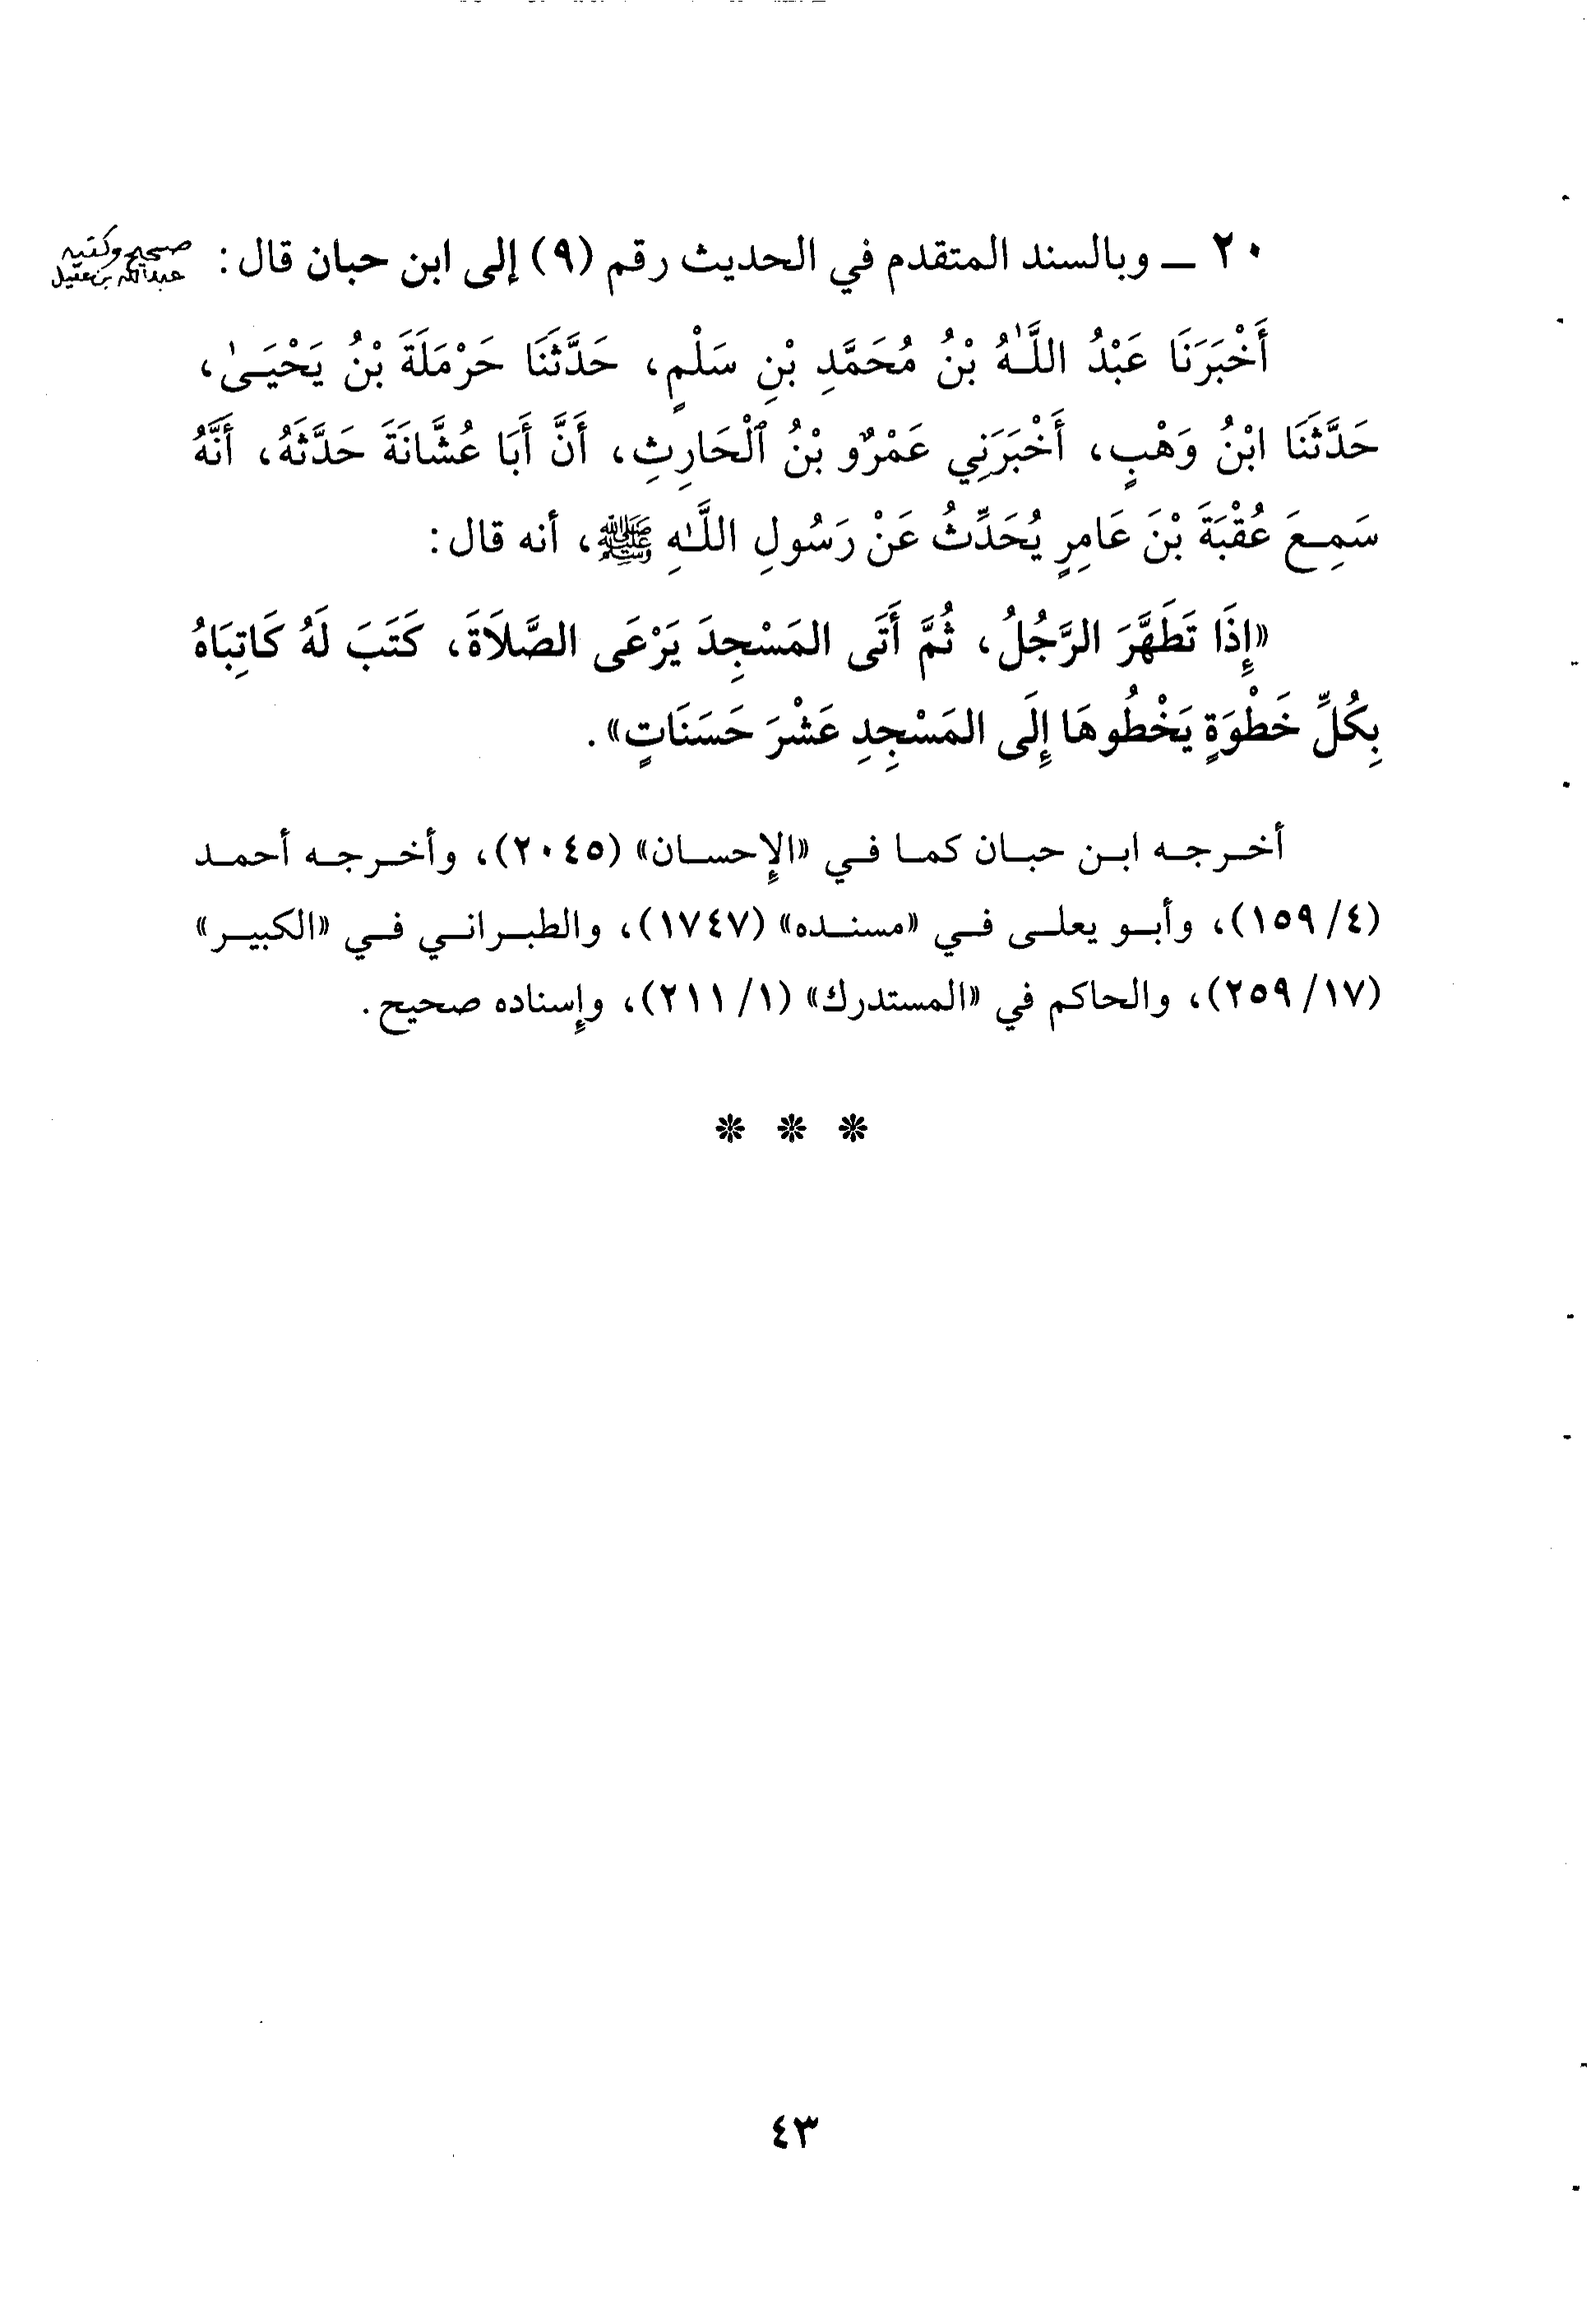 ٢٠ ــ وبالسند المتقدم في الحديث رقم (٩) إلى ابن حبان قال:
صحيح وكتبه
عبدالله بن عقيل
أَخْبَرَنَا عَبْدُ اللَّـٰهُ بْنُ مُحَمَّدِ بْنِ سَلْمٍ، حَدَّثَنَا حَرْمَلَةَ بْنُ يَحْيَـىٰ،
حَدَّثَنَا ابْنُ وَهْبٍ، أَخْبَرَنِي عَمْرٌو بْنُ ٱلْحَارِثِ، أَنَّ أَبَا عُشَّانَةَ حَدَّثَهُ، أَنَّهُ
سَمِـعَ عُقْبَةَ بْنَ عَامِرٍ يُحَدِّثُ عَنْ رَسُولِ اللَّـٰهِ ﷺ، أنه قال:
«إِذَا تَطَهَّرَ الرَّجُلُ، ثُمَّ أَتَى المَسْجِدَ يَرْعَى الصَّلاَةَ، كَتَبَ لَهُ كَاتِبَاهُ
بِكُلِّ خَطْوَةٍ يَخْطُوهَا إِلَى المَسْجِدِ عَشْرَ حَسَنَاتٍ».
أخرجه ابن حبان كما في «الإِحسان» (٢٠٤٥)، وأخرجه أحمد
(٤/ ١٥٩)، وأبو يعلى في «مسنده» (١٧٤٧)، والطبراني في «الكبير»
(١٧/ ٢٥٩)، والحاكم في «المستدرك» (١/ ٢١١)، وإِسناده صحيح.
* * *
٤٣